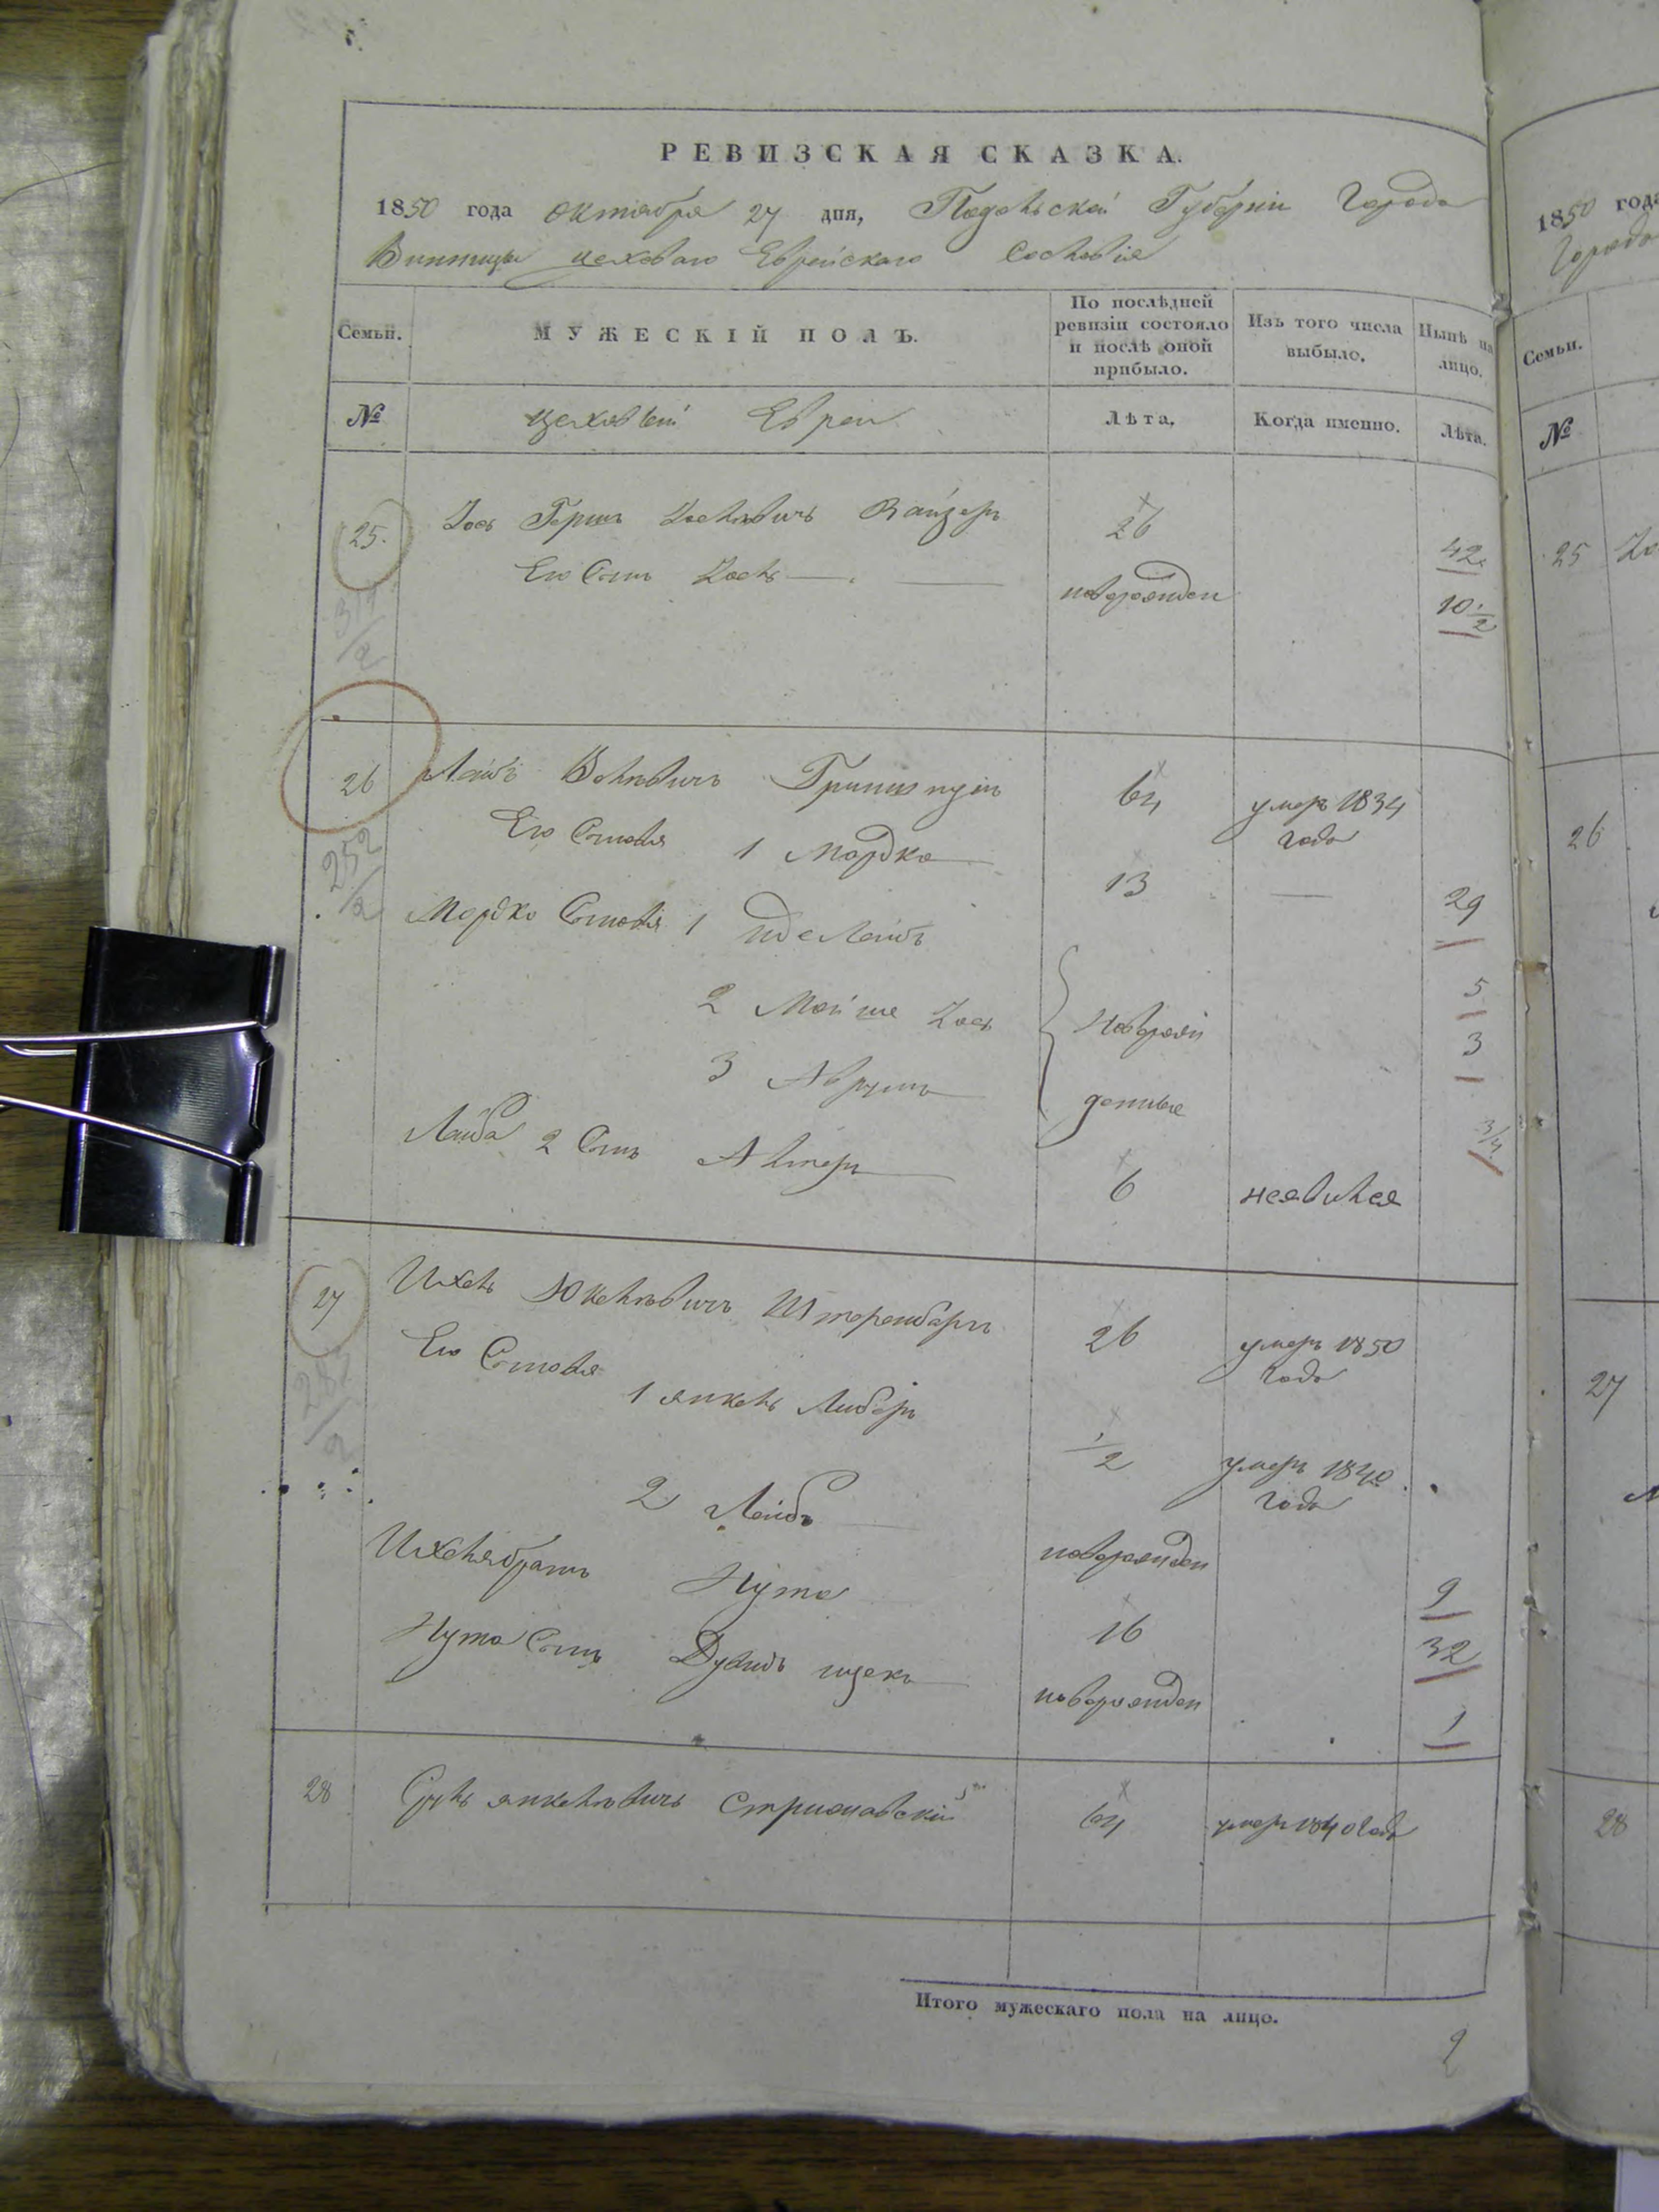 РЕВИЗСКАЯ СКАЗКА.
1850 года октября 27 дня, Подольской Губернии Города
Винницы цеховаго Еврейскаго Сословія
Семьи.
МУЖЕСКІЙ ПОЛЪ.
По послѣдней ревизіи состояло и послѣ оной прибыло.
Изъ того числа выбыло.
Нынѣ на лицо.
№
цеховыи Евреи
Лѣта.
Когда именно.
Лѣта.
25.
Іось Герш Іосьловичъ Вайзеръ 26 42
Его Сынъ новорожден 10 1/2
26 Лейбъ Волковичъ 64 умеръ 1834
года
Его Сыновья 1 Мордко 13 — 29
252/2
Мордко Сыновья 1 Лейбъ 5
2 Мойше Іось Новорож 3
3 Аврумъ денные 3/4
Лейба 2 Сынъ Альтеръ 6 неявился
27 Ихель Юкелевичъ Штеренбергъ 26 умеръ 1850
года
Его Сыновья
1 янкель Либеръ 1/2 умеръ 1840
года
2 Лейбъ новорожден 9
Ихеля братъ Нута 16 32
Нута Сынъ Дувидъ новорожден 1
28 Сруль янкелевичъ 64 умеръ 1840 года
Итого мужескаго пола на лицо.
9
1850 года
Города
Семьи.
№
25
26
27
28